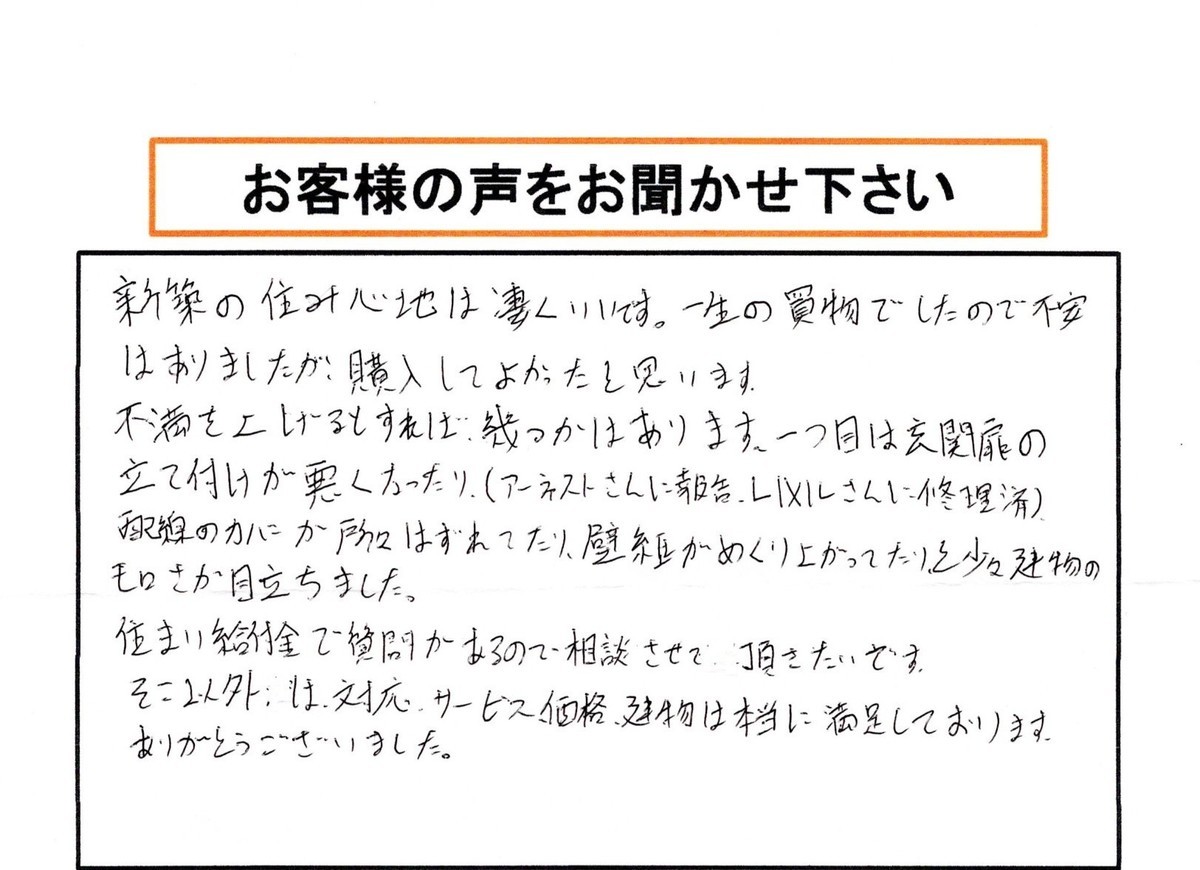 お客様の声をお聞かせ下さい
新築の住み心地は凄くいいです。一生の買物でしたので不安
はありましたが、購入してよかったと思います。
不満を上げるとすれば、幾つかはあります。一つ目は玄関扉の
立て付けが悪くなったり、(アーネストさんに報告、LIXILさんに修理済)
配線のカバーが所々はずれてたり、壁紙がめくり上がってたり、と少々建物の
モロさが目立ちました。
住まい給付金で質問があるので相談させて頂きたいです。
そこ以外は、対応、サービス、価格、建物は本当に満足しております。
ありがとうございました。